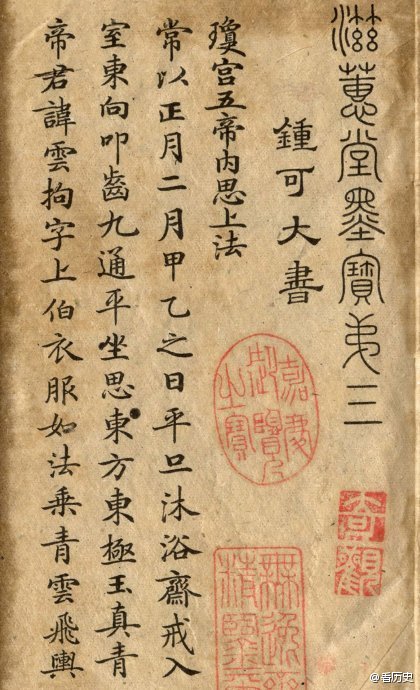 滋蕙堂墨寶弟三
鍾可大書
瓊宮五帝内思上法
常以正月二月甲乙之日平旦沐浴齋戒入
室東向叩齒九通平坐思東方東極玉真青
帝君諱雲拘字上伯衣服如法乘青雲飛輿
嘉慶御覽之寶
奇觀
@看历史